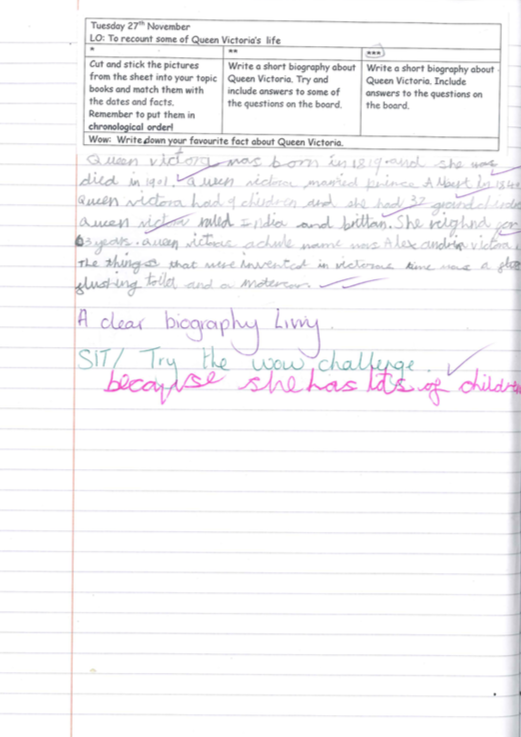 Tuesday 27th November
LO: To recount some of Queen Victoria's life
*
**
***
Cut and stick the pictures from the sheet into your topic books and match them with the dates and facts. Remember to put them in chronological order!
Write a short biography about Queen Victoria. Try and include answers to some of the questions on the board.
Write a short biography about Queen Victoria. Include answers to the questions on the board.
Wow: Write down your favourite fact about Queen Victoria.
Queen victora was born in 1819 and she was
died in 1901. queen victora married prince Albert in
queen victora had 9 children and she had 37
queen victora ruled India and brittan. She
63 years. queen name was Alexandrin victora
The things that were invented in time was a
flushing toilet and a
A clear biography Livvy.
SIT/ Try the wow challenge.
because she has lots of children